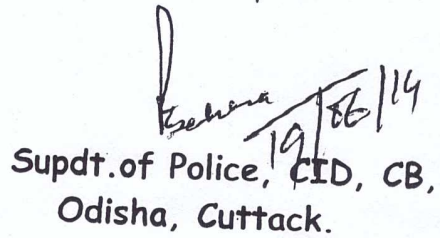 Behera
19/06/14
Supdt.of Police, CID, CB,
Odisha, Cuttack.